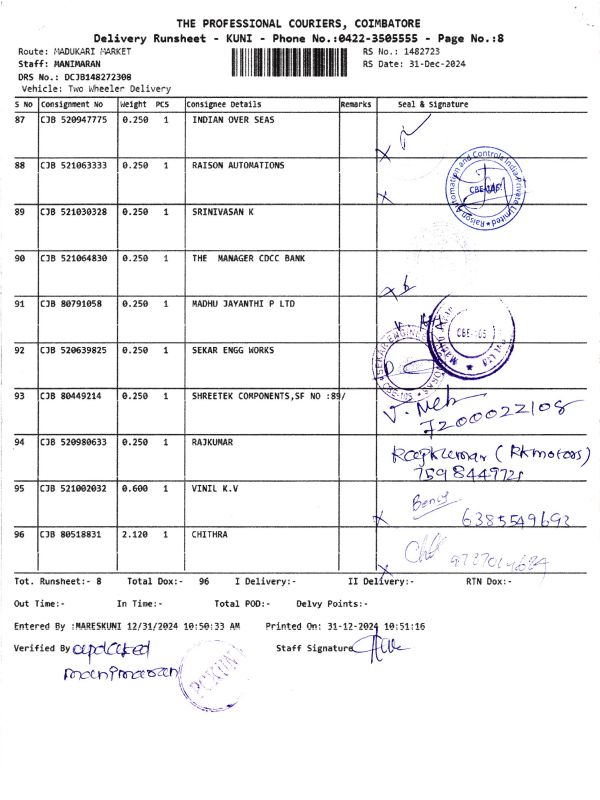 THE PROFESSIONAL COURIERS, COIMBATORE
Delivery Runsheet - KUNI - Phone No.:0422-3505555 - Page No.:8
Route: MADUKARI MARKET RS No.: 1482723
Staff: MANIMARAN RS Date: 31-Dec-2024
DRS No.: DCJB148272308
Vehicle: Two Wheeler Delivery
S No Consignment No Weight PCS Consignee Details Remarks Seal & Signature
87 CJB 520947775 0.250 1 INDIAN OVER SEAS
88 CJB 521063333 0.250 1 RAISON AUTOMATIONS
Raison Automation and Controls India Private Limited
89 CJB 521030328 0.250 1 SRINIVASAN K
90 CJB 521064830 0.250 1 THE MANAGER CDCC BANK
91 CJB 80791058 0.250 1 MADHU JAYANTHI P LTD
92 CJB 520639825 0.250 1 SEKAR ENGG WORKS
93 CJB 80449214 0.250 1 SHREETEK COMPONENTS,SF NO :89/
7200022108
94 CJB 520980633 0.250 1 RAJKUMAR
Rajkumar (RK motors)
7598449721
95 CJB 521002032 0.600 1 VINIL K.V
6385549692
96 CJB 80518831 2.120 1 CHITHRA
Tot. Runsheet:- 8 Total Dox:- 96 I Delivery:- II Delivery:- RTN Dox:-
Out Time:- In Time:- Total POD:- Delvy Points:-
Entered By :MARESKUNI 12/31/2024 10:50:33 AM Printed On: 31-12-2024 10:51:16
Verified By updated Staff Signature
manimaran